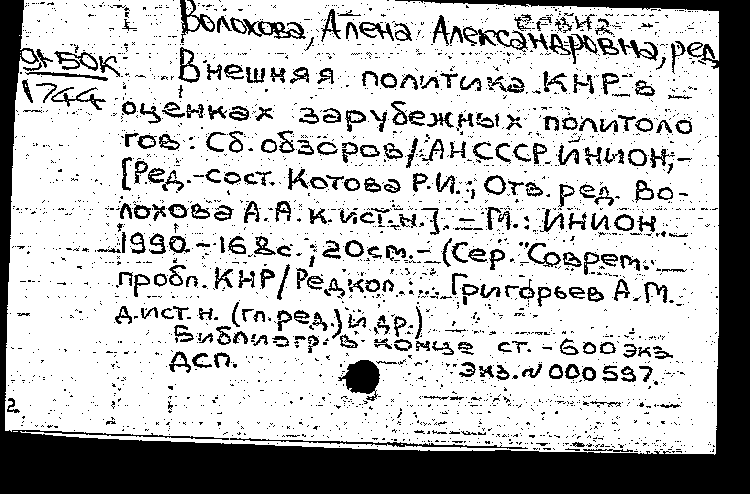 Волохова, Алена Александровна, ред.
9ч БОК
1744
Внешняя политика КНР в
оценках зарубежных политоло
гов : Сб. обзоров / АН СССР. ИНИОН; -
[Ред.-сост. Котова Р.И.; Отв. ред. Во-
лохова А.А. к.ист.н.]. - М. : ИНИОН.
1990. - 168с. ; 20см. - (Сер. "Соврет.
пробл. КНР / Редкол. ... Григорьев А.М.
д.ист.н. (гл.ред.) и др.)
Библиогр. в конце ст. - 600 экз.
ДСП. Экз. N 000597.
2.